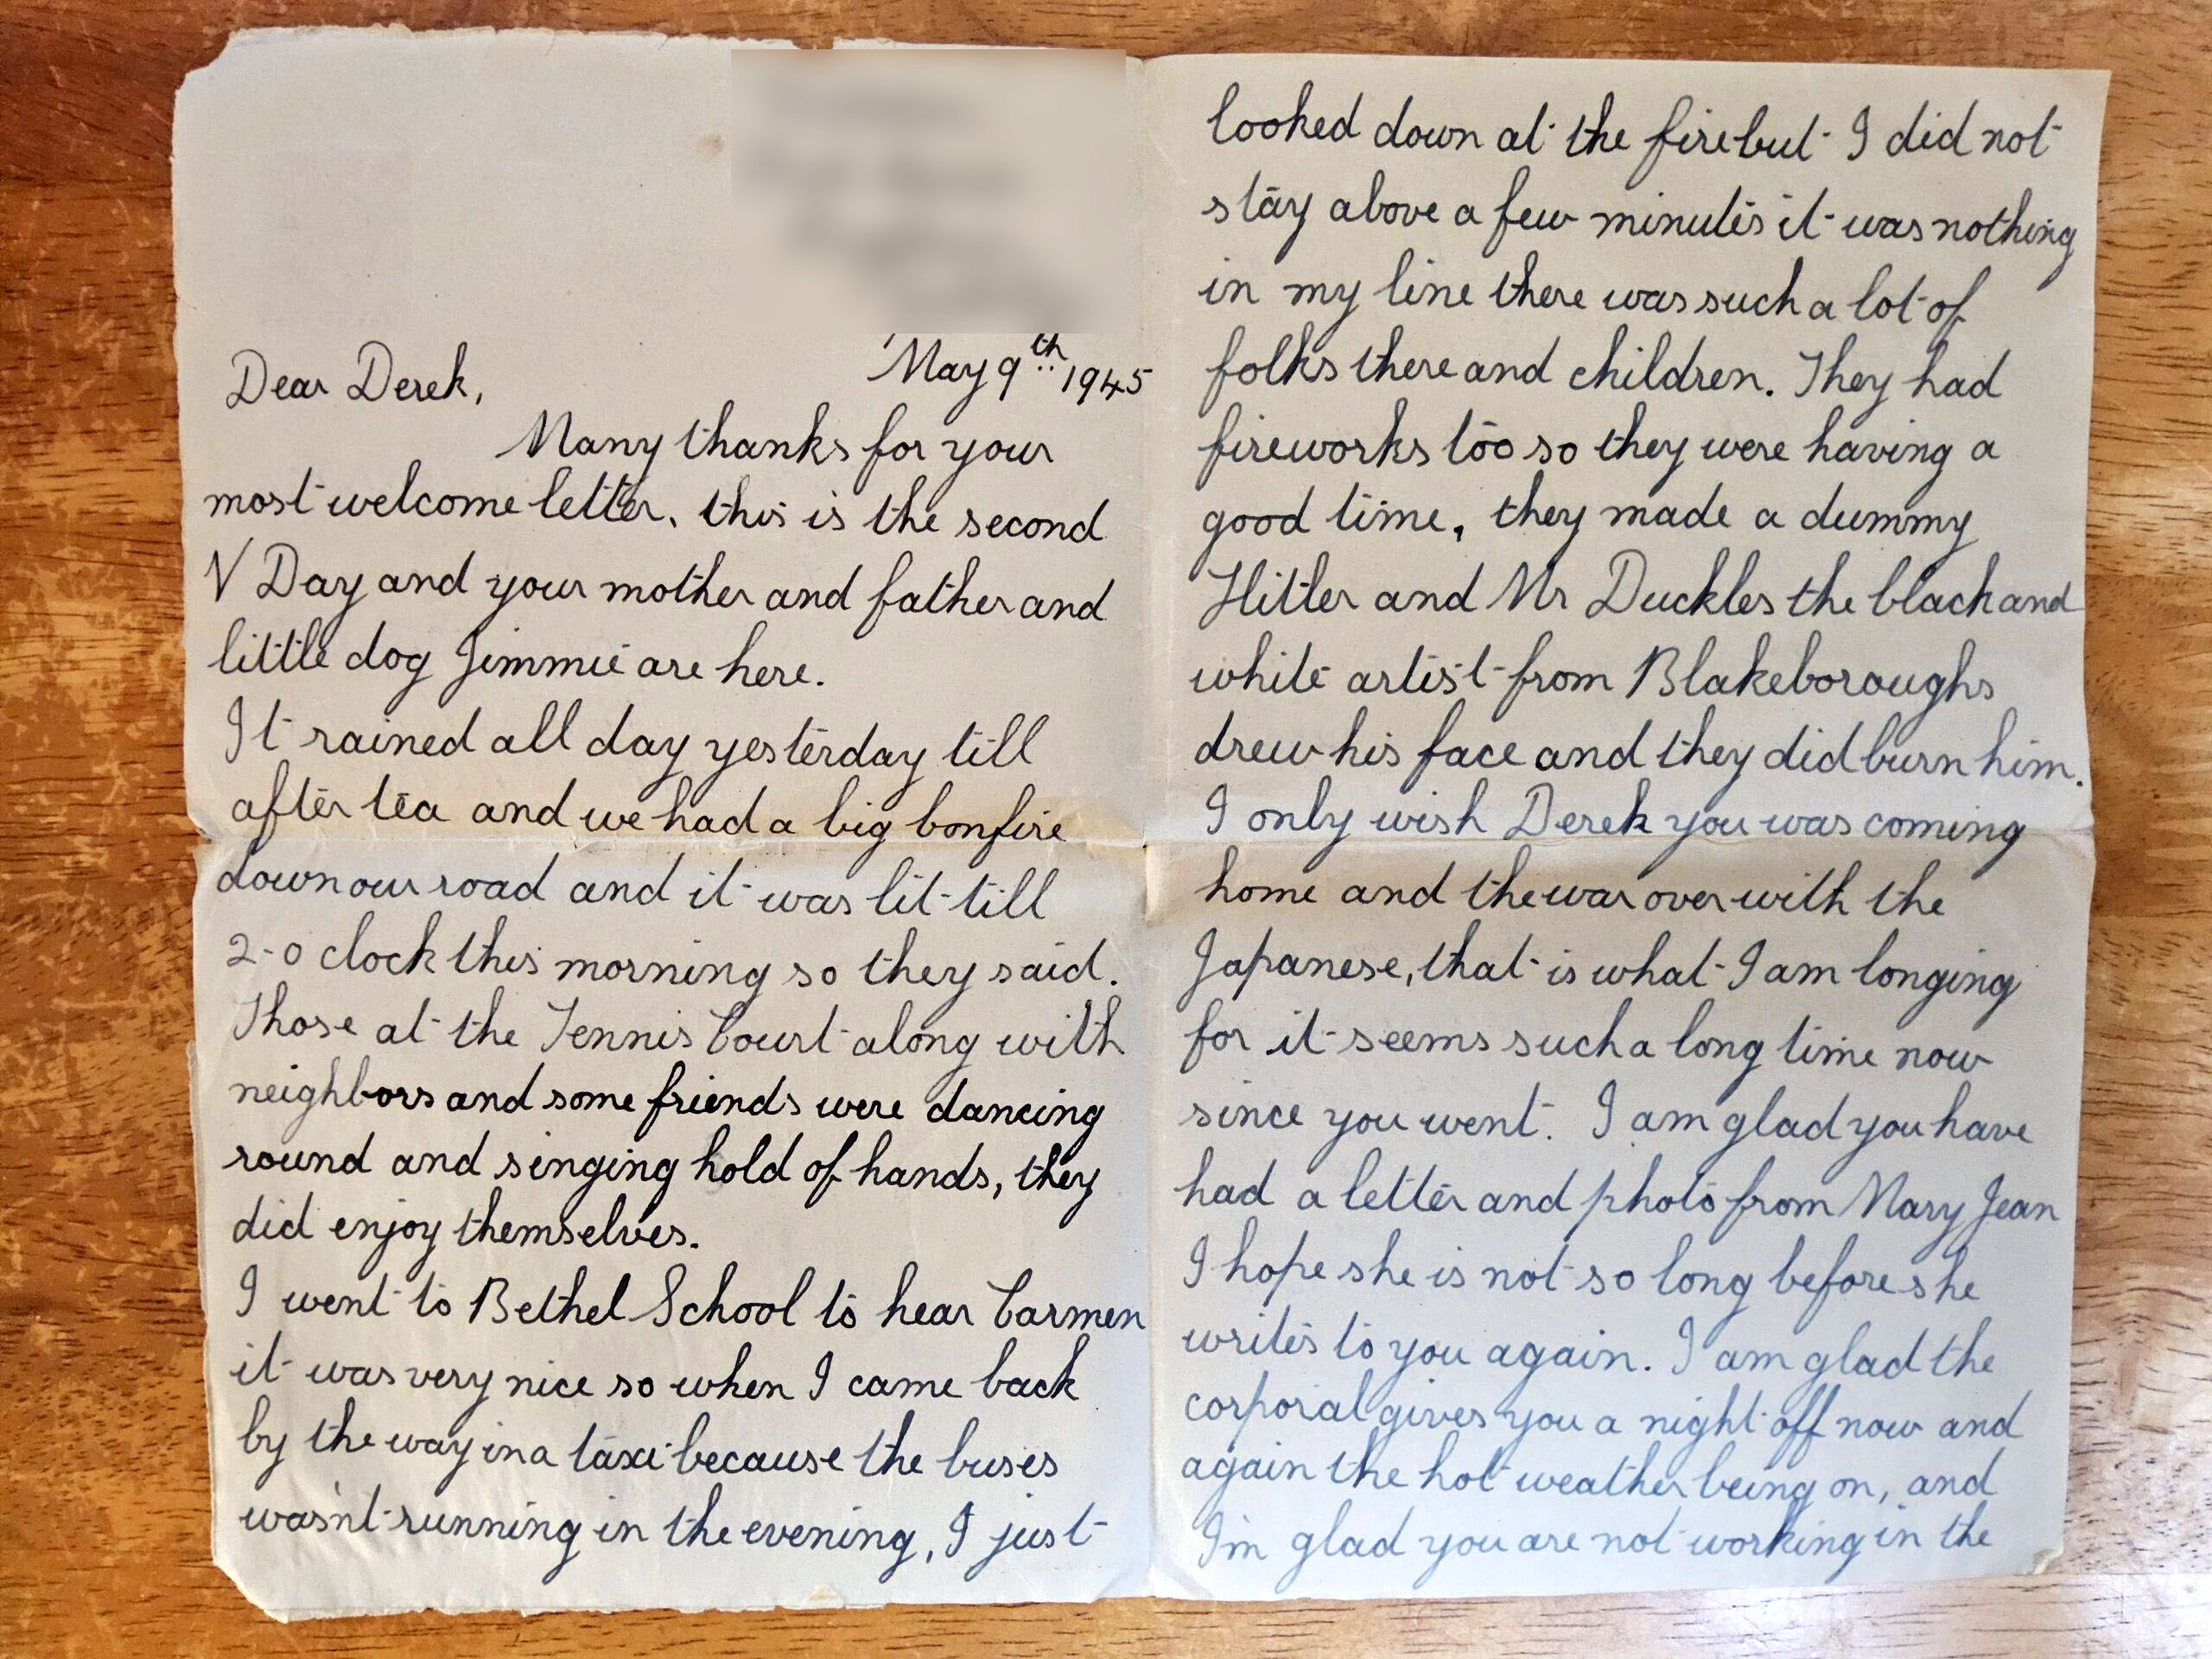 May 9th 1945
Dear Derek,
Many thanks for your
most welcome letter, this is the second
V Day and your mother and father and
little dog Jimmie are here.
It rained all day yesterday till
after tea and we had a big bonfire
down our road and it was lit till
2-0 clock this morning so they said.
Those at the Tennis Court along with
neighbors and some friends were dancing
round and singing hold of hands, they
did enjoy themselves.
I went to Bethel School to hear Carmen
it was very nice so when I came back
by the way in a taxi because the buses
wasn't running in the evening, I just
looked down at the fire but I did not
stay above a few minutes it was nothing
in my line there was such a lot of
folks there and children. They had
fireworks too so they were having a
good time, they made a dummy
Hitler and Mr Duckles the black and
white artist from Blakeboroughs
drew his face and they did burn him.
I only wish Derek you was coming
home and the war over with the
Japanese, that is what I am longing
for it seems such a long time now
since you went. I am glad you have
had a letter and photo from Mary Jean
I hope she is not so long before she
writes to you again. I am glad the
corporal gives you a night off now and
again the hot weather being on, and
I'm glad you are not working in the